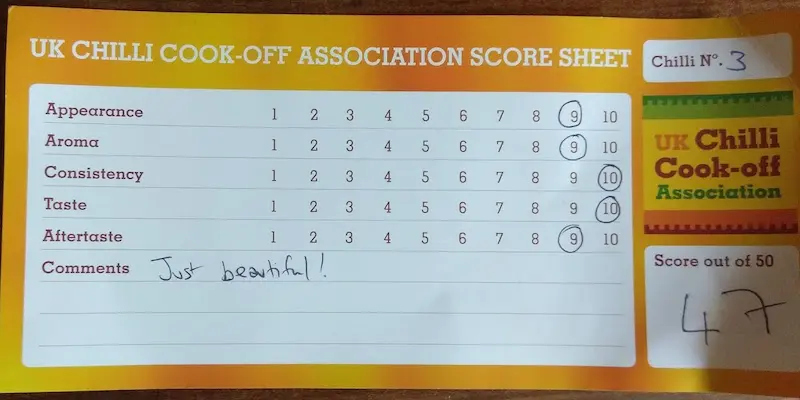 UK CHILLI COOK-OFF ASSOCIATION SCORE SHEET
Chilli Nº. 3
Appearance 1 2 3 4 5 6 7 8 9 10
Aroma 1 2 3 4 5 6 7 8 9 10
Consistency 1 2 3 4 5 6 7 8 9 10
Taste 1 2 3 4 5 6 7 8 9 10
Aftertaste 1 2 3 4 5 6 7 8 9 10
Comments Just beautiful!
UK Chilli
Cook-off
Association
Score out of 50
47